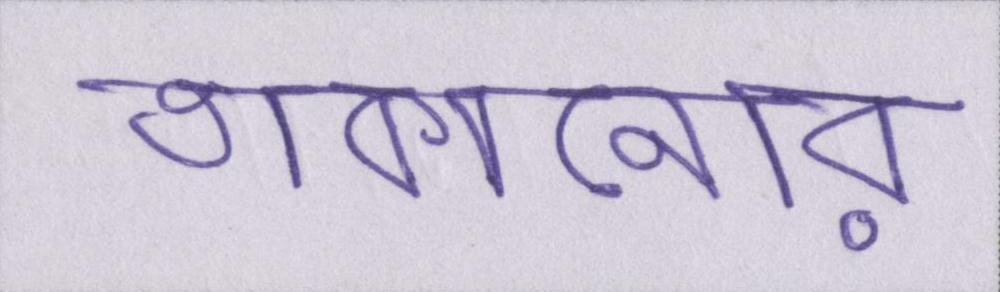 তাকানোর